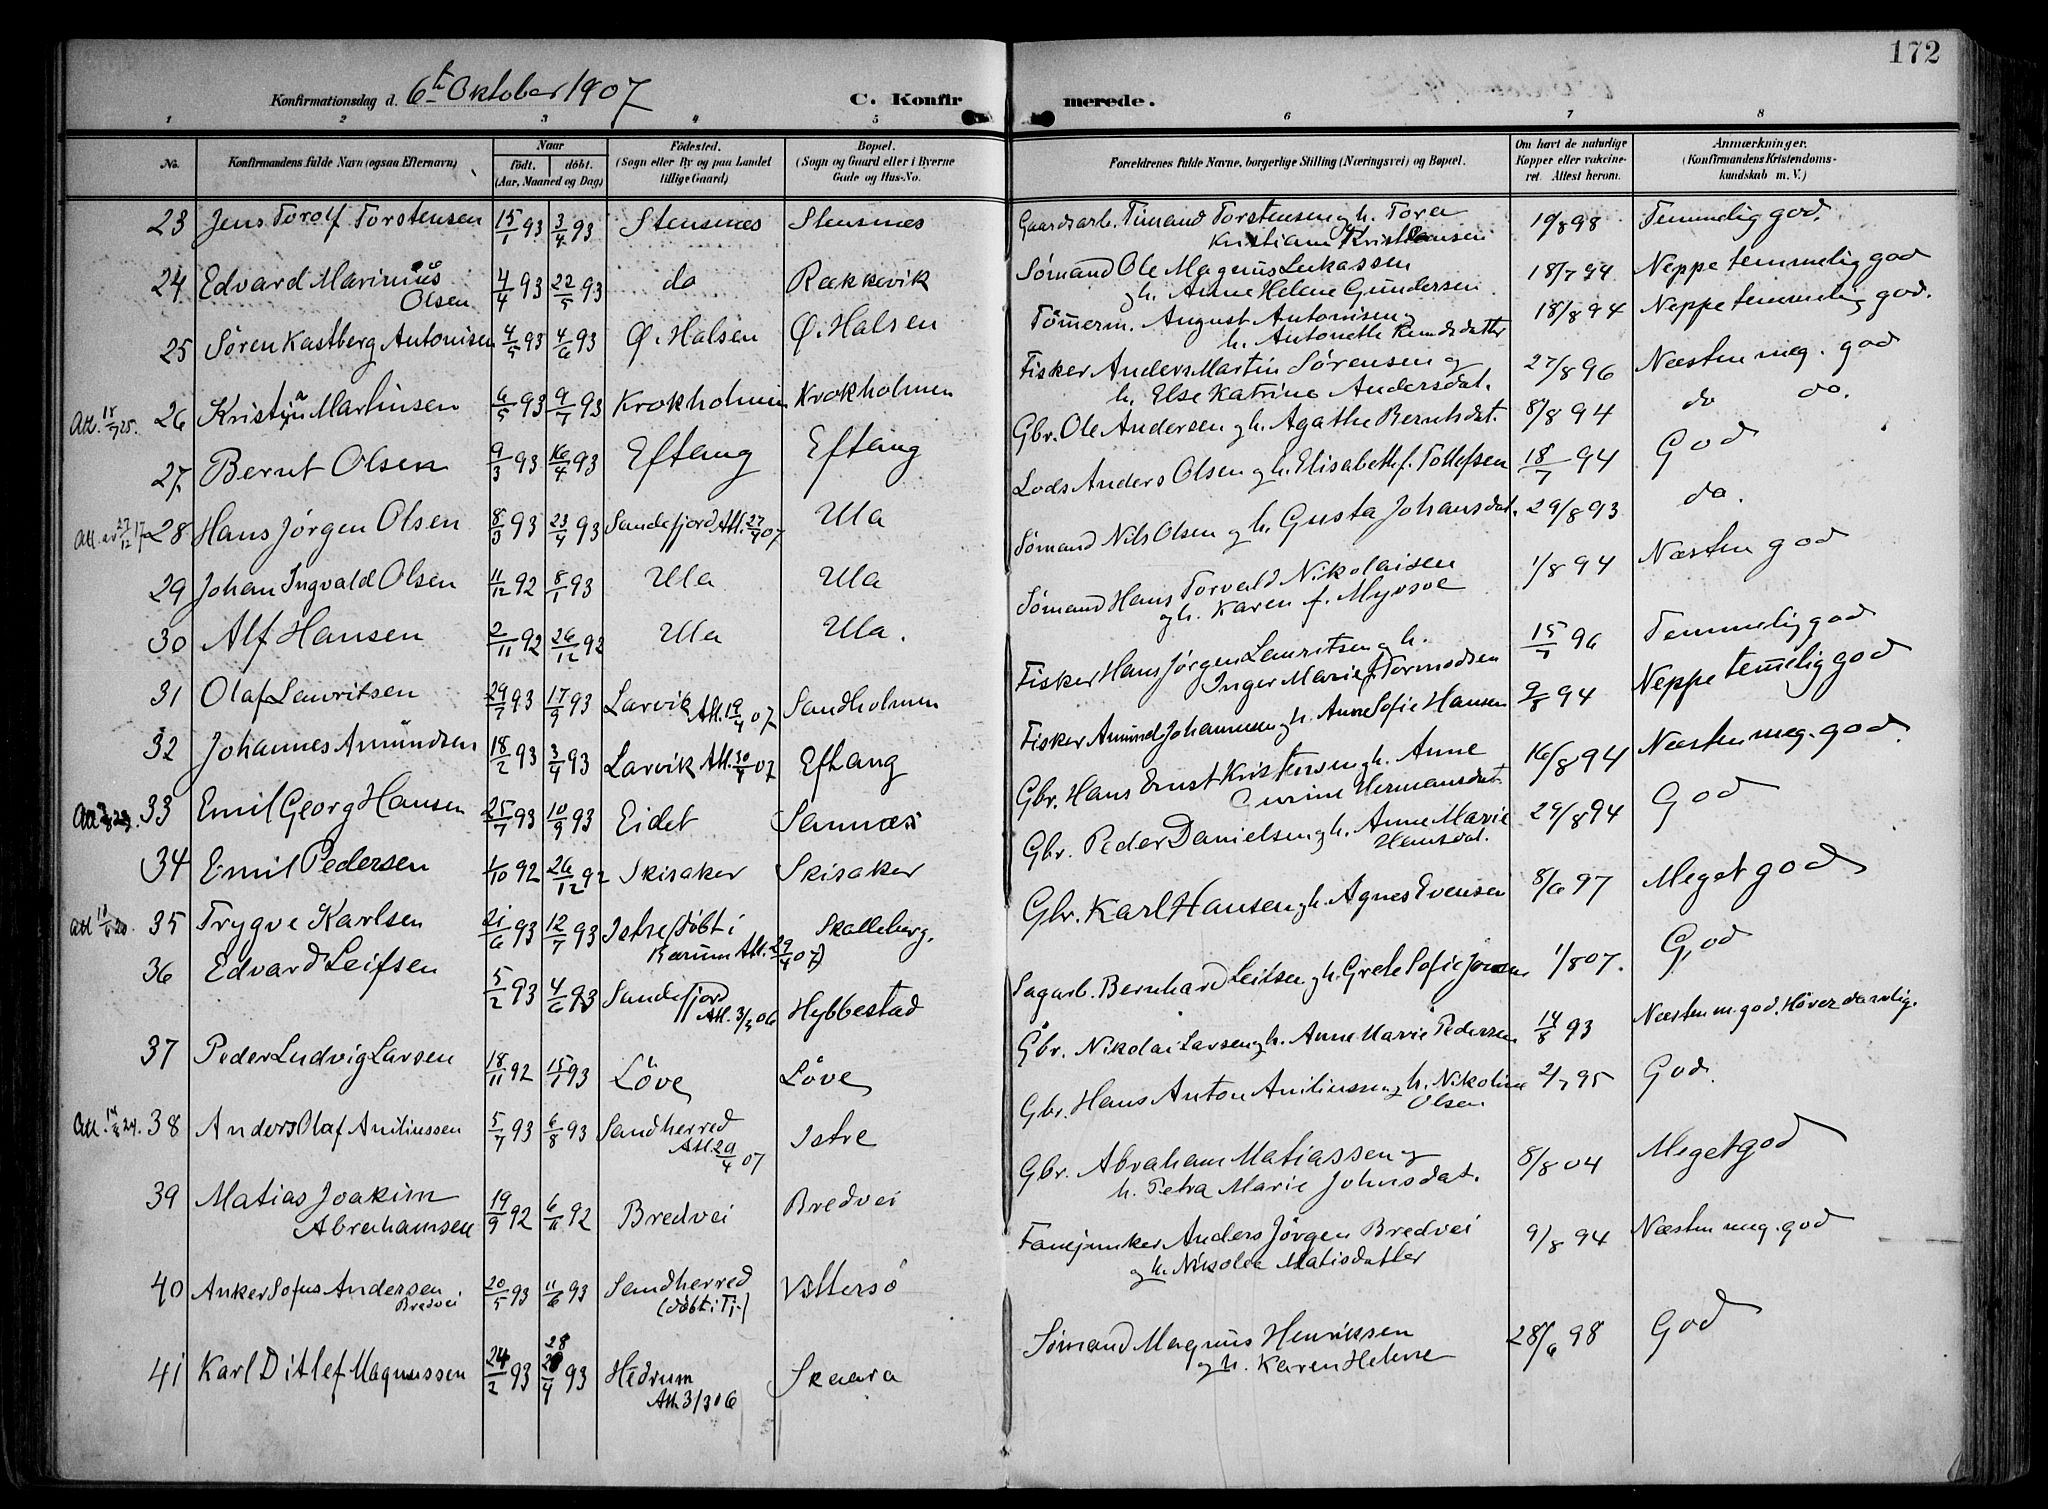 172
Konfirmationsdag d. 6te Oktober 1907 C. Konfirmerede.
1 2 3 4 5 6 7 8
No. Konfirmandens fulde Navn (ogsaa Efternavn) Naar født. døbt. (Aar, Maaned og Dag) Fødested. (Sogn eller By og paa Landet tillige Gaard) Bopæl. (Sogn og Gaard eller i Byerne Gade og Hus-No. Forældrenes fulde Navne, borgerlige Stilling (Næringsvei) og Bopæl. Om havt de naturlige Kopper eller vakcineret. Attest herom. Anmærkninger. (Konfirmandens Kristendomskundskab m. V.)
23 Jens Torolf Torstensen 15/1 93 3/4 93 Stensnæs Stensnæs Gaardsarb. Timand Torstensen og h. Tora 19/8 98 Temmelig god.
Kristiane Kristiansen
24 Edvard Marinius 4/4 93 22/5 93 do Rækkevik Sømand Ole Magnus Lukassen 18/7 94 Neppe temmelig god
Olsen og h. Anne Helene Gundersen
25 Søren Kastberg Antonisen 4/5 93 4/6 93 Ø. Halsen Ø. Halsen Tømmerm. August Antonisen og 18/8 94 Neppe temmelig god.
h. Antonette
Att. 25. 26 Kristian Martinsen 6/5 93 9/7 93 Krokholmen Krokholmen Fisker Anders Martin Sørensen og 27/8 96 Næsten meg. god
h. Else Katrine Andersdat.
27. Bernt Olsen 9/3 93 16/4 93 Eftang Eftang Gbr. Ole Andersen og h. Agathe Berntsdat. 8/8 94 do do.
Att. 27/12 17 28 Hans Jørgen Olsen 8/3 93 23/4 93 Sandefjord Att. 27/9 07 Ula Lods Anders Olsen og h. Elisabeth f. Tollefsen 18/7 94 God
29 Johan Ingvald Olsen 11/12 92 8/1 93 Ula Ula Sømand Nils Olsen og h. Gusta Johansdat. 29/8 93 do.
30 Alf Hansen 2/11 92 26/12 92 Ula Ula. Sømand Hans Torvald Nikolaisen 1/8 94 Næsten god
og h. Karen f. Myrsoe
31 Olaf Lauritsen 29/7 93 17/9 93 Larvik Att. 19/4 07 Sandholmen Fisker Hans Jørgen Lauritsen og h. 15/7 96 Temmelig god
Inger Marie f. Tormodsen
32 Johannes Amundsen 18/2 93 3/4 93 Larvik Att. 30/4 07 Eftang Fisker Amund Johannesen og h. Anne Sofie Hansen 9/8 94 Neppe temmelig god
Att 33 Emil Georg Hansen 25/7 93 10/9 93 Eidet Sannæs Gbr. Hans Ernst Kristensen og h. Anne 16/8 94 Næsten meg. god.
Hermansdat.
34 Emil Pedersen 1/10 92 26/12 92 Skisaker Skisaker Gbr. Peder Danielsen og h. Anne Marie 29/8 94 God
Hansdat.
Att 35 Trygve Karlsen 21/6 93 12/7 93 Istre (døbt i Skalleberg. Gbr. Karl Hansen og h. Agnes Evensen 8/6 97 Meget god
Bærum Att. 29/4 07)
36 Edvard Leifsen 5/2 93 4/6 93 Sandefjord Hybbestad Sagarb. Bernhard Leifsen og h. Grete Sofie 1/8 07. God
Att. 3/3 06
37 Peder Ludvig Larsen 18/11 92 15/1 93 Løve Løve Gbr. Nikolai Larsen og h. Anne Marie Pedersen 14/8 93 Næsten m. god. Hører daarlig.
Att. 14/8 24. 38 Anders Olaf Aniliussen 5/7 93 6/8 93 Sandherred Istre Gbr. Hans Anton Aniliussen og h. Nikoline 2/7 95 God.
Att. 29/4 07 Olsen
39 Matias Joakim 19/9 92 6/11 92 Bredvei Bredvei Gbr. Abraham Matiassen og 8/8 04 Meget god
Abrahamsen h. Petra Marie Johnsdat.
40 Anker Sofus Andersen 20/5 93 11/6 93 Sandherred Vittersø Fanejunker Anders Jørgen Bredvei 9/8 94 Næsten meg. god
Bredvei (døbt i Tj-) og h. Nikolea Matisdatter
41 Karl Ditlef Magnussen 24/2 93 28/4 93 Hedrum Skaara Sømand Magnus Henrikssen 28/6 98 God
Att. 3/3 06 og h. Karen Helene